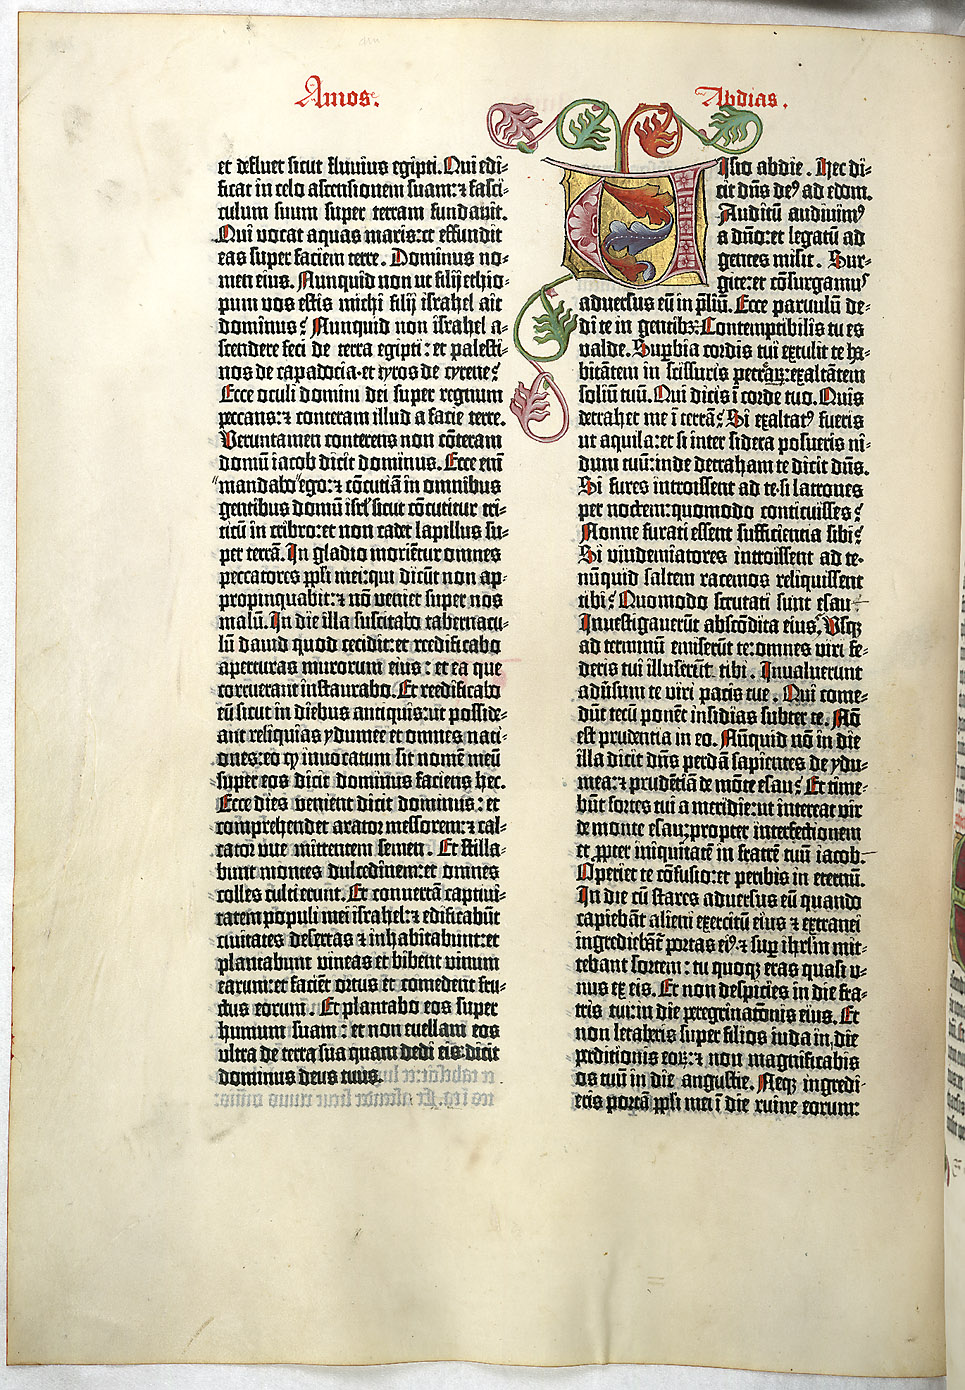 Amos.
et defluet sicut fluvius egipti. Qui edi-
ficat in celo ascensionem suam: ⁊ fasci-
culum suum super terram fundavit.
Qui vocat aquas maris: et effundit
eas super faciem terre. Dominus no-
men eius. Nunquid non ut filij ethio-
pum vos estis michi filij israhel ait
dominus? Nunquid non israhel a-
scendere feci de terra egipti: et palesti-
nos de capadocia· et syros de cyrene?
Ecce oculi domini dei super regnum
peccans: ⁊ conteram illud a facie terre.
Veruntamen conterens non cōteram
domū iacob dicit dominus. Ecce enī
mandabo ego: ⁊ cōcutiā in omnibus
gentibus domū isrl' sicut cōcutitur tri-
ticū in cribro: et non cadet lapillus su-
per terrā. In gladio moriētur omnes
peccatores ppli mei: qui dicūt non ap-
propinquabit: ⁊ nō veniet super nos
malū. In die illa suscitabo tabernacu-
lū david quod cecidit: et reedificabo
aperturas murorum eius: et ea que
corruerant instaurabo. Et reedificabo
eū sicut in diebus antiquis: ut posside-
ant reliquias ydumee et omnes nati-
ones: eo q invocatum sit nomē meū
super eos dicit dominus faciens hec.
Ecce dies venient dicit dominus: et
comprehendet arator messorem: ⁊ cal-
cator uve mittentem semen. Et stilla-
bunt montes dulcedinem: et omnes
colles culti erunt. Et convertā captivi-
tatem populi mei israhel: ⁊ edificabūt
civitates desertas ⁊ inhabitabunt: et
plantabunt vineas et bibent vinum
earum: et faciēt ortus et comedent fru-
ctus eorum. Et plantabo eos super
humum suam: et non evellam eos
ultra de terra sua quam dedi eis: dicit
dominus deus tuus.
Abdias.
Visio abdie. Hec di-
cit dn̄s deꝰ ad edom.
Auditū audivimꝰ
a dn̄o: et legatū ad
gentes misit. Sur-
gite: et cōsurgamꝰ
adversus eū in p̄liū. Ecce parvulū de-
di te in gentibꝫ: Contemptibilis tu es
valde. Supbia cordis tui extulit te ha-
bitātem in scissuris petraꝝ: exaltātem
soliū tuū. Qui dicis ī corde tuo. Quis
detrahet me ī terrā? Si exaltatꝰ fueris
ut aquila: et si inter sidera posueris ni-
dum tuū: inde detraham te dicit dn̄s.
Si fures introissent ad te· si latrones
per noctem: quomodo conticuisses?
Nonne furati essent sufficientia sibi?
Si vindemiatores introissent ad te·
nūquid saltem racemos reliquissent
tibi? Quomodo scrutati sunt esau
Investigaverūt abscōdita eius. Usqꝫ
ad terminū emiserūt te: omnes viri fe-
deris tui illuserūt tibi. Invaluerunt
adūsum te viri pacis tue. Qui come-
dūt tecū ponēt insidias subter te. Nō
est prudentia in eo. Nūquid nō in die
illa dicit dn̄s perdā sapientes de ydu-
mea: ⁊ prudētiā de mōte esau? Et time-
būt fortes tui a meridie: ut intereat vir
de monte esau: propter interfectionem
et ꝓpter iniquitatē in fratrē tuū iacob.
Operiet te cōfusio: et peribis in eternū.
In die cū stares adversus eū quando
capiebāt alieni exercitū eius ⁊ extranei
ingrediebāt portas eiꝰ ⁊ sup ihrl'm mit-
tebant sortem: tu quoqꝫ eras quasi u-
nus ex eis. Et non despicies in die fra-
tris tui: in die peregrinatōnis eius. Et
non letaberis super filios iuda in die
perditionis eoꝝ: ⁊ non magnificabis
os tuū in die angustie. Neqꝫ ingredi-
eris portā ppli mei ī die ruine eorum: